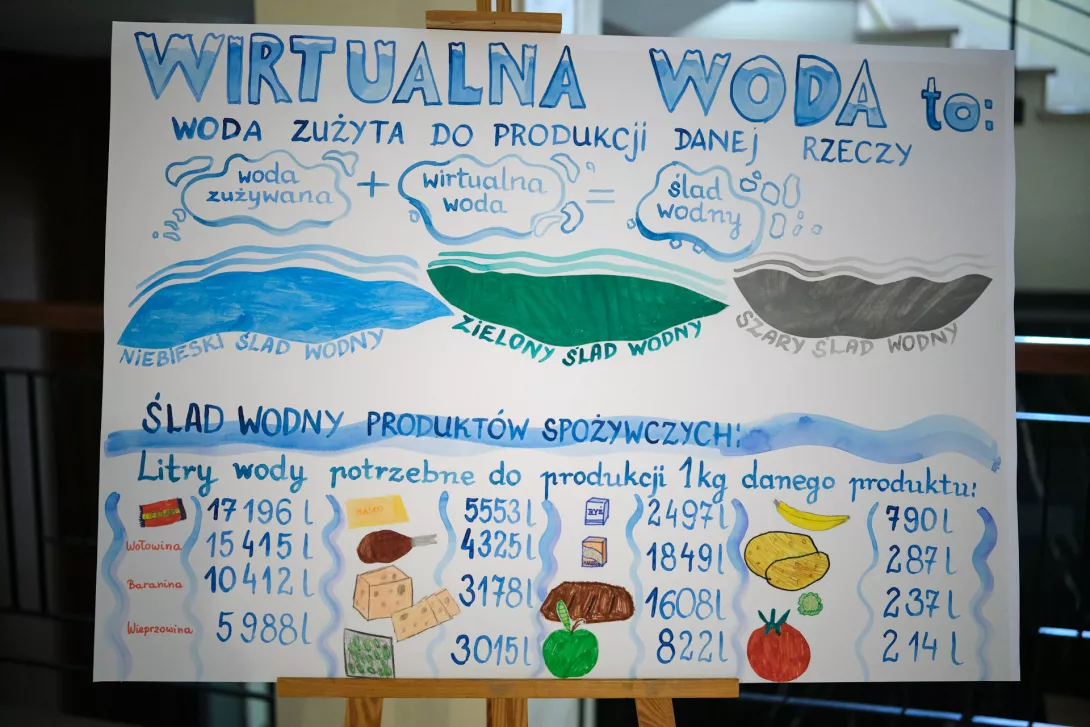 WIRTUALNA WODA to:
WODA ZUŻYTA DO PRODUKCJI DANEJ RZECZY
woda zużywana + wirtualna woda = ślad wodny
NIEBIESKI ŚLAD WODNY
ZIELONY ŚLAD WODNY
SZARY ŚLAD WODNY
ŚLAD WODNY PRODUKTÓW SPOŻYWCZYCH:
Litry wody potrzebne do produkcji 1kg danego produktu:
17 196 l
Wołowina 15 415 l
Baranina 10 412 l
Wieprzowina 5 988 l
MASŁO 5553 l
4325 l
3178 l
3015 l
RYŻ 2497 l
1849 l
1608 l
822 l
790 l
287 l
237 l
214 l